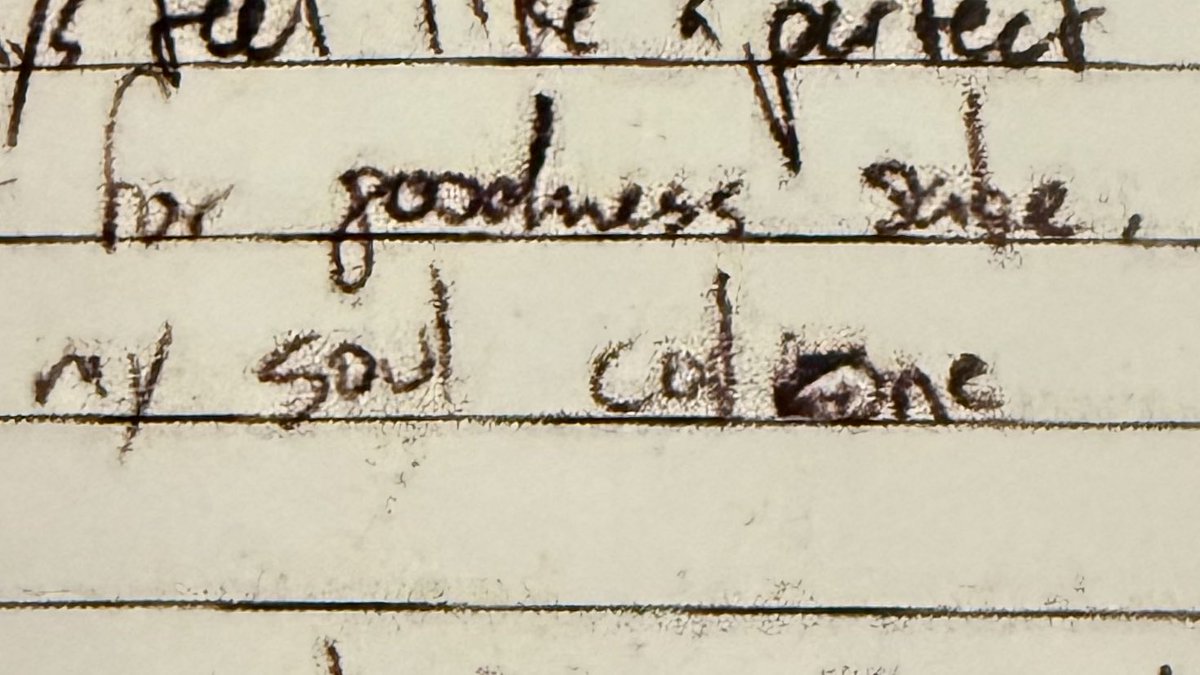 feel like a perfect
for goodness sake,
my soul